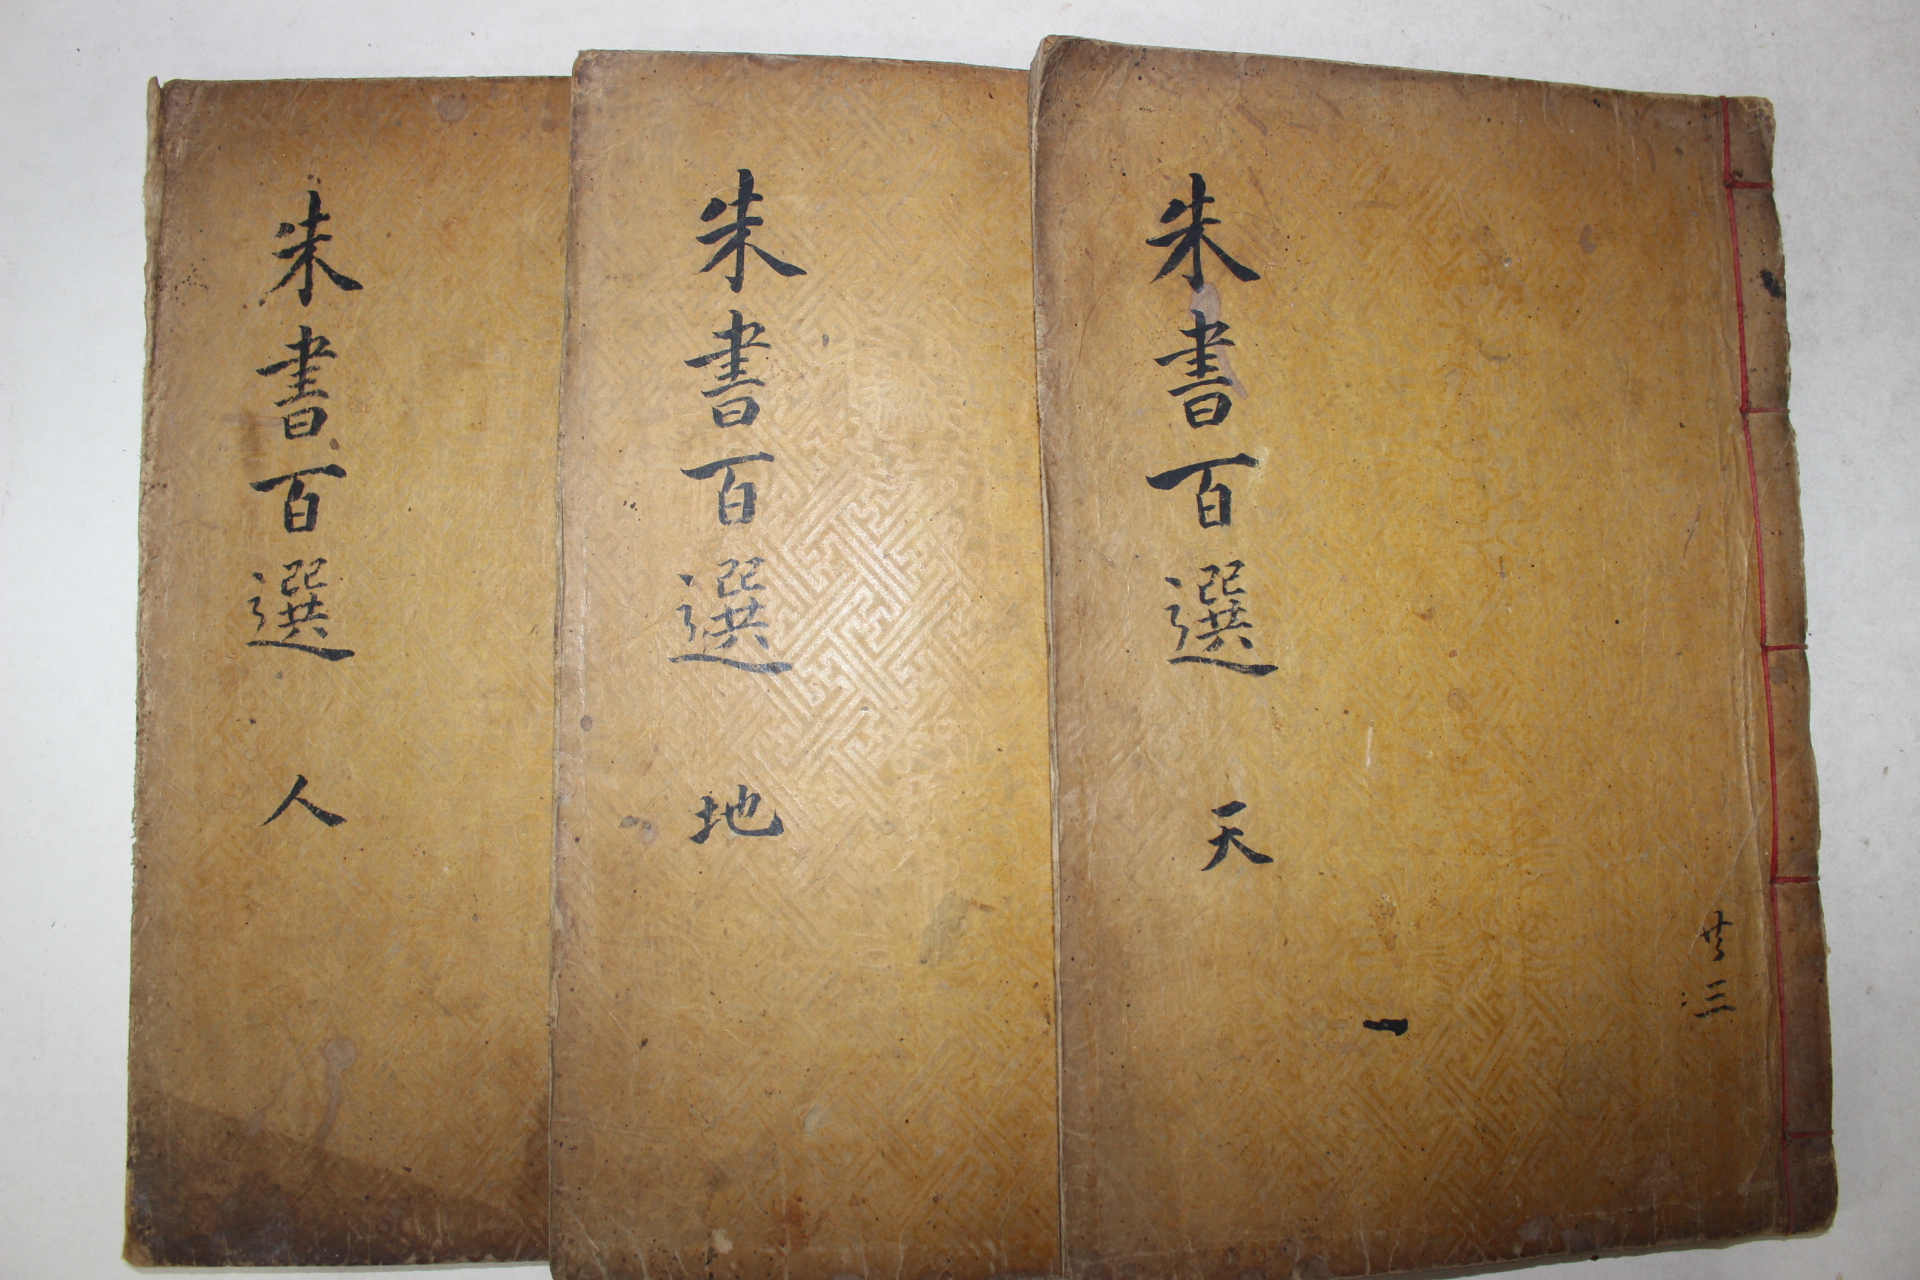 朱書百選 天
一
廿三
朱書百選 地
朱書百選 人